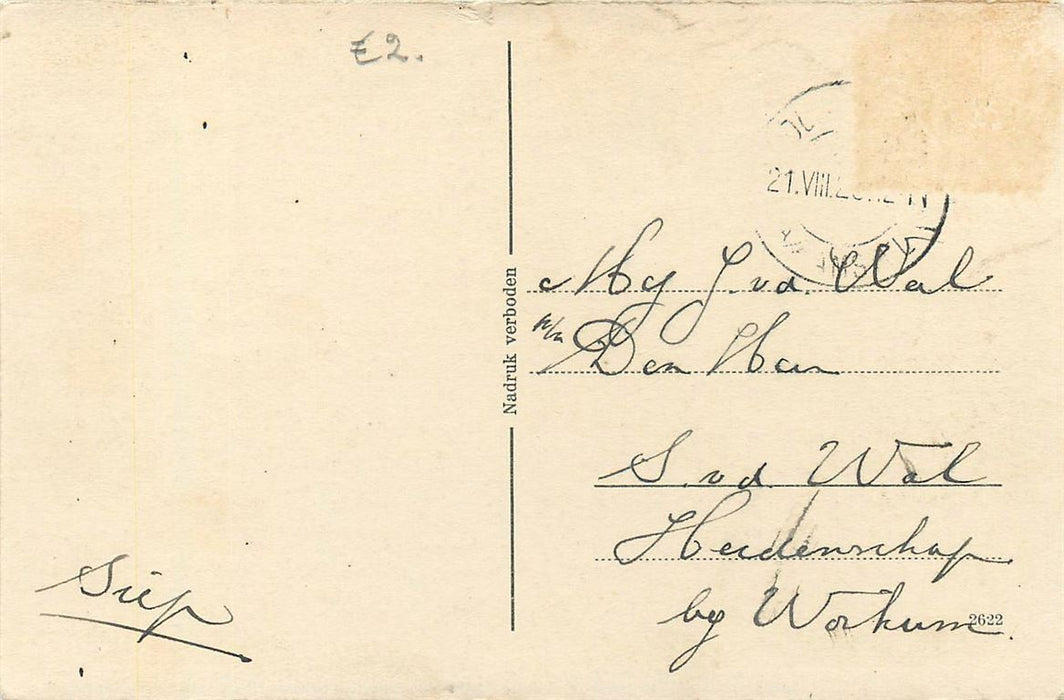 €2.
21.VIII.2
Nadruk verboden
Mej J. v.d. Wal
p/a Den Heer
S. v.d. Wal
Heidenschap
by Workum.
2622
Siep